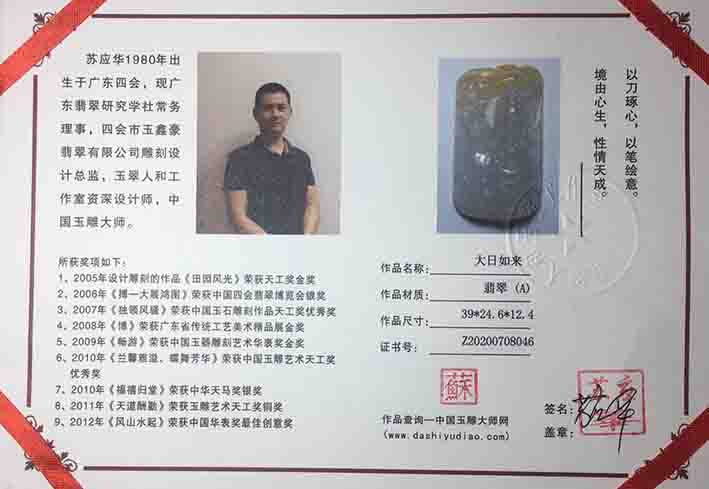 苏应华1980年出
生于广东四会，现广
东翡翠研究学社常务
理事，四会市玉鑫豪
翡翠有限公司雕刻设
计总监，玉翠人和工
作室资深设计师，中
国玉雕大师。
以刀琢心，以笔绘意。
境由心生，性情天成。
所获奖项如下：
1、2005年设计雕刻的作品《田园风光》荣获天工奖金奖
2、2006年《搏一大展鸿图》荣获中国四会翡翠博览会银奖
3、2007年《独领风骚》荣获中国玉石雕刻作品天工奖优秀奖
4、2008年《博》荣获广东省传统工艺美术精品展金奖
5、2009年《畅游》荣获中国玉器雕刻艺术华表奖金奖
6、2010年《兰馨熏溢、蝶舞芳华》荣获中国玉雕艺术天工奖
优秀奖
7、2010年《福禧归堂》荣获中华天马奖银奖
8、2011年《天道酬勤》荣获玉雕艺术天工奖铜奖
9、2012年《风山水起》荣获中国华表奖最佳创意奖
作品名称： 大日如来
作品材质： 翡翠（A）
作品尺寸： 39*24.6*12.4
证书号： Z20200708046
蘇
作品查询—中国玉雕大师网
(www.dashiyudiao.com)
签名：
盖章：